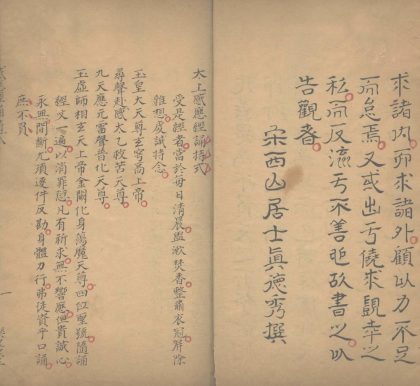 求諸內而求諸外顧以力不足
而怠焉又或出于僥求覬幸之
私而反流于不善也故書之以
告觀者
宋西山居士真德秀撰
太上感應經誦持式
受是經者當於每日清晨盥漱焚香整肅衣冠屏除
雜想虔誠持念
玉皇大天尊玄穹高上帝
尋聲赴感太乙救苦天尊
九天應元雷聲普化天尊
玉虛師相玄天上帝金闕化身蕩魔天尊
經文一遍以消罪愆凡有祈求無不響應但貴誠心
永無間斷尤須逐件反勘身體力行弗徒資乎口誦
庶不負